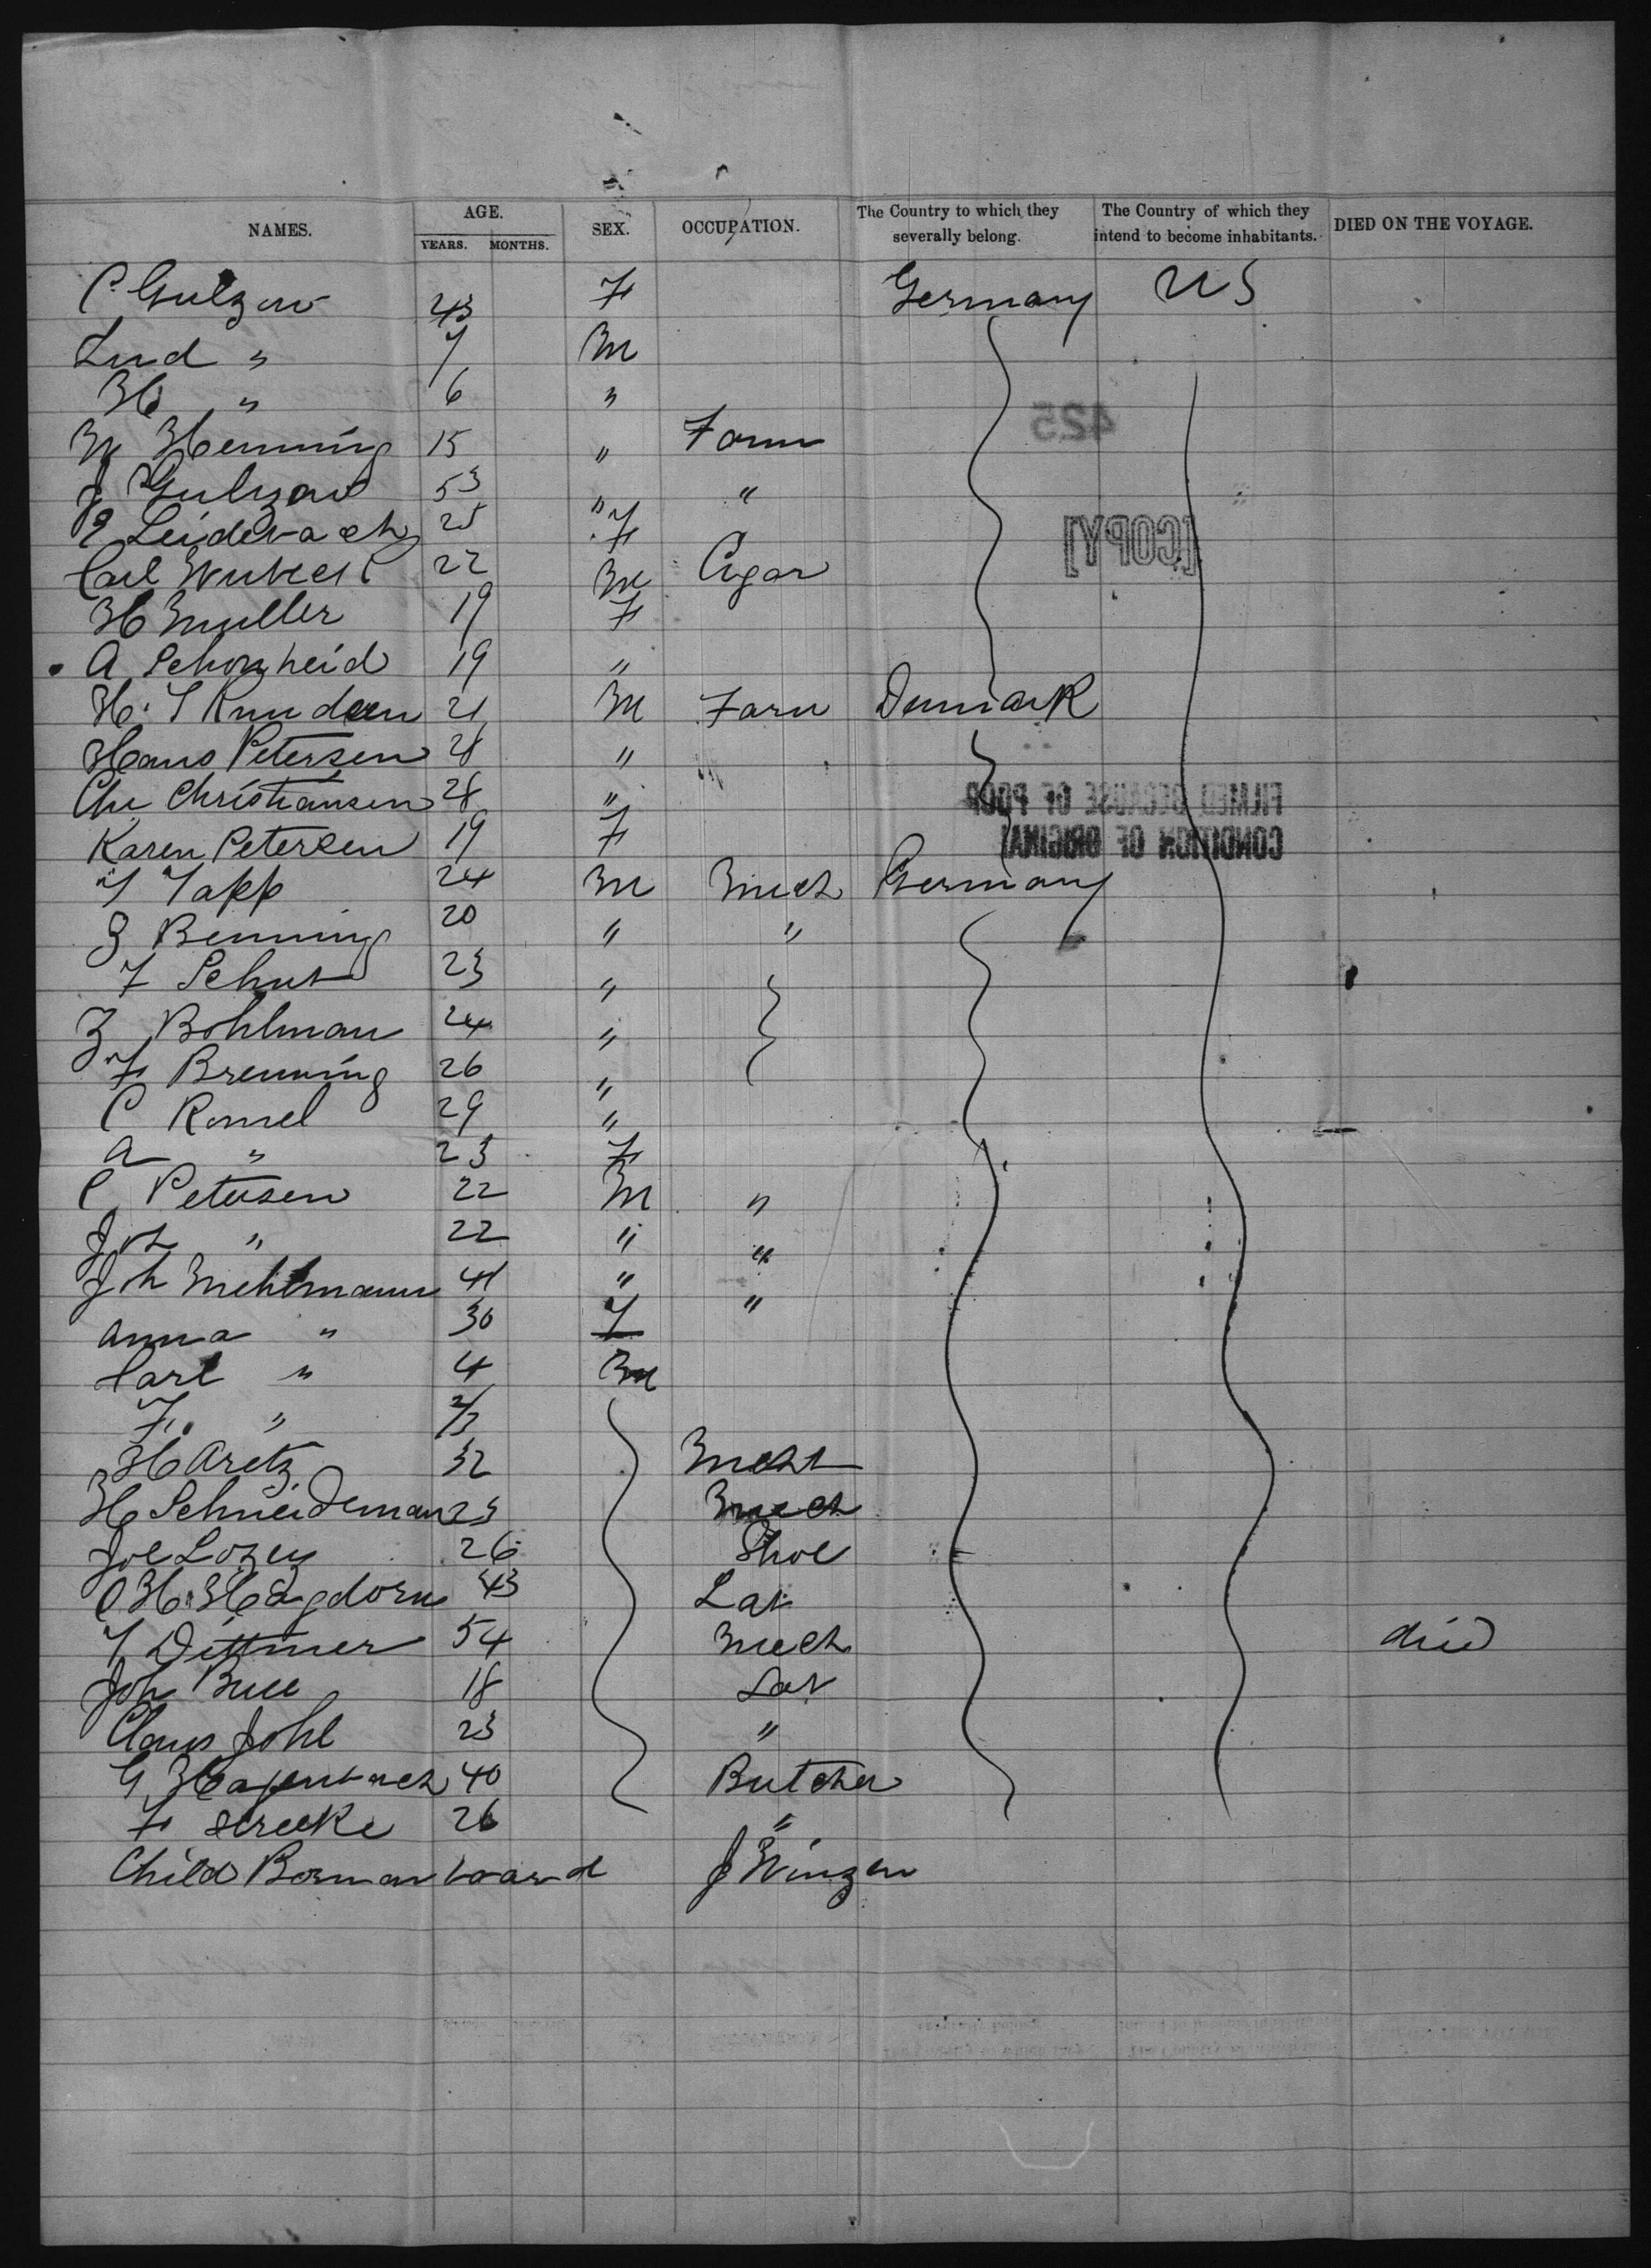 NAMES. AGE. SEX. OCCUPATION. The Country to which they severally belong. The Country of which they intend to become inhabitants. DIED ON THE VOYAGE.
YEARS. MONTHS.
C Gulzow 43 F Germany US
Lud " 7 M
H " 6 "
M Henning 15 " Farm
J Gulzow 53 " "
E Leideback 25 F
Carl 22 M Cigar
H Muller 19 F
A Schonheid 19 "
H. J Knudsen 21 M Farm Denmark
Hans Petersen 28 "
Chr Christiansen 28 "
Karen Petersen 19 F
J Tapp 24 M Mech Germany
G Benning 20 " "
F Schut 23 "
G Bohlman 24 "
F Brenning 26 "
C Romel 29 "
A " 23 F
C Petersen 22 M "
Joh " 22 " "
Joh Mehlmann 41 " "
Anna " 30 F
Carl " 4 M
F. "
H Aretz 32 Mech
H Schneideman 23 Mech
Joe Lozey 26 Shoe
C H. Hagdorn 43 Lab
J Dittmer 54 Mech died
Joh Buee 18 Lab
Claus Johl 23 "
G Hagenbach 40 Butcher
F Streeke 26 "
Child Born on board J Winzen
425
[COPY]
FILMED BECAUSE OF POOR
CONDITION OF ORIGINAL